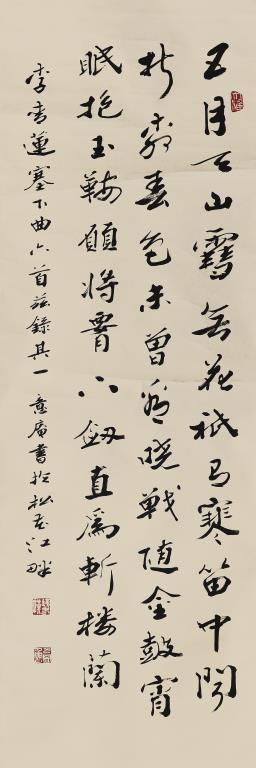 五月天山雪無花祇有寒笛中聞
折柳春色未曾看曉戰隨金鼓宵
眠抱玉鞍願將腰下劍直爲斬楼蘭
李青蓮塞下曲六首茲錄其一 意庵書於松花江畔